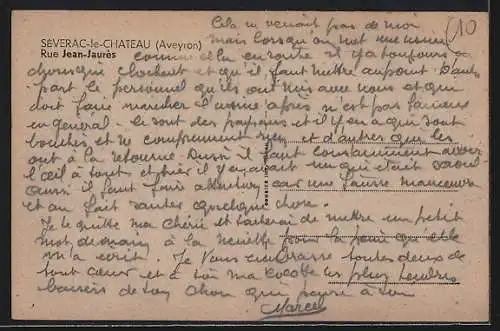 Cela ne venait pas de moi
mais lorsqu'on met une usine
10
SEVERAC-le-CHATEAU (Aveyron)
Rue Jean-Jaurès
comme elle en route il y a toujours
chose que clochent et qu'il faut mettre au point. D'autre
part le personnel qu'ils ont mis avec nous et que
doit faire marcher l'usine après n'est pas fameux
en général. Ce sont des paysans et il y en a qui sont
bouchés et ne comprennent rien et d'autres que les
ont à la retourne. Aussi il faut constamment avoir
l'œil à tout et hier il y en avait un qui était saoul
aussi il faut faire attention car une fausse manœuvre
et on fait sauter quelque chose.
Je te quitte ma chérie et tacherai de mettre un petit
mot demain à la Ninette pour la peine qu'elle
m'a écrit. Je vous embrasse toutes deux de
tout cœur et à toi ma cocotte les plus tendres
baisers de ton chou que pense à toi
Marcel